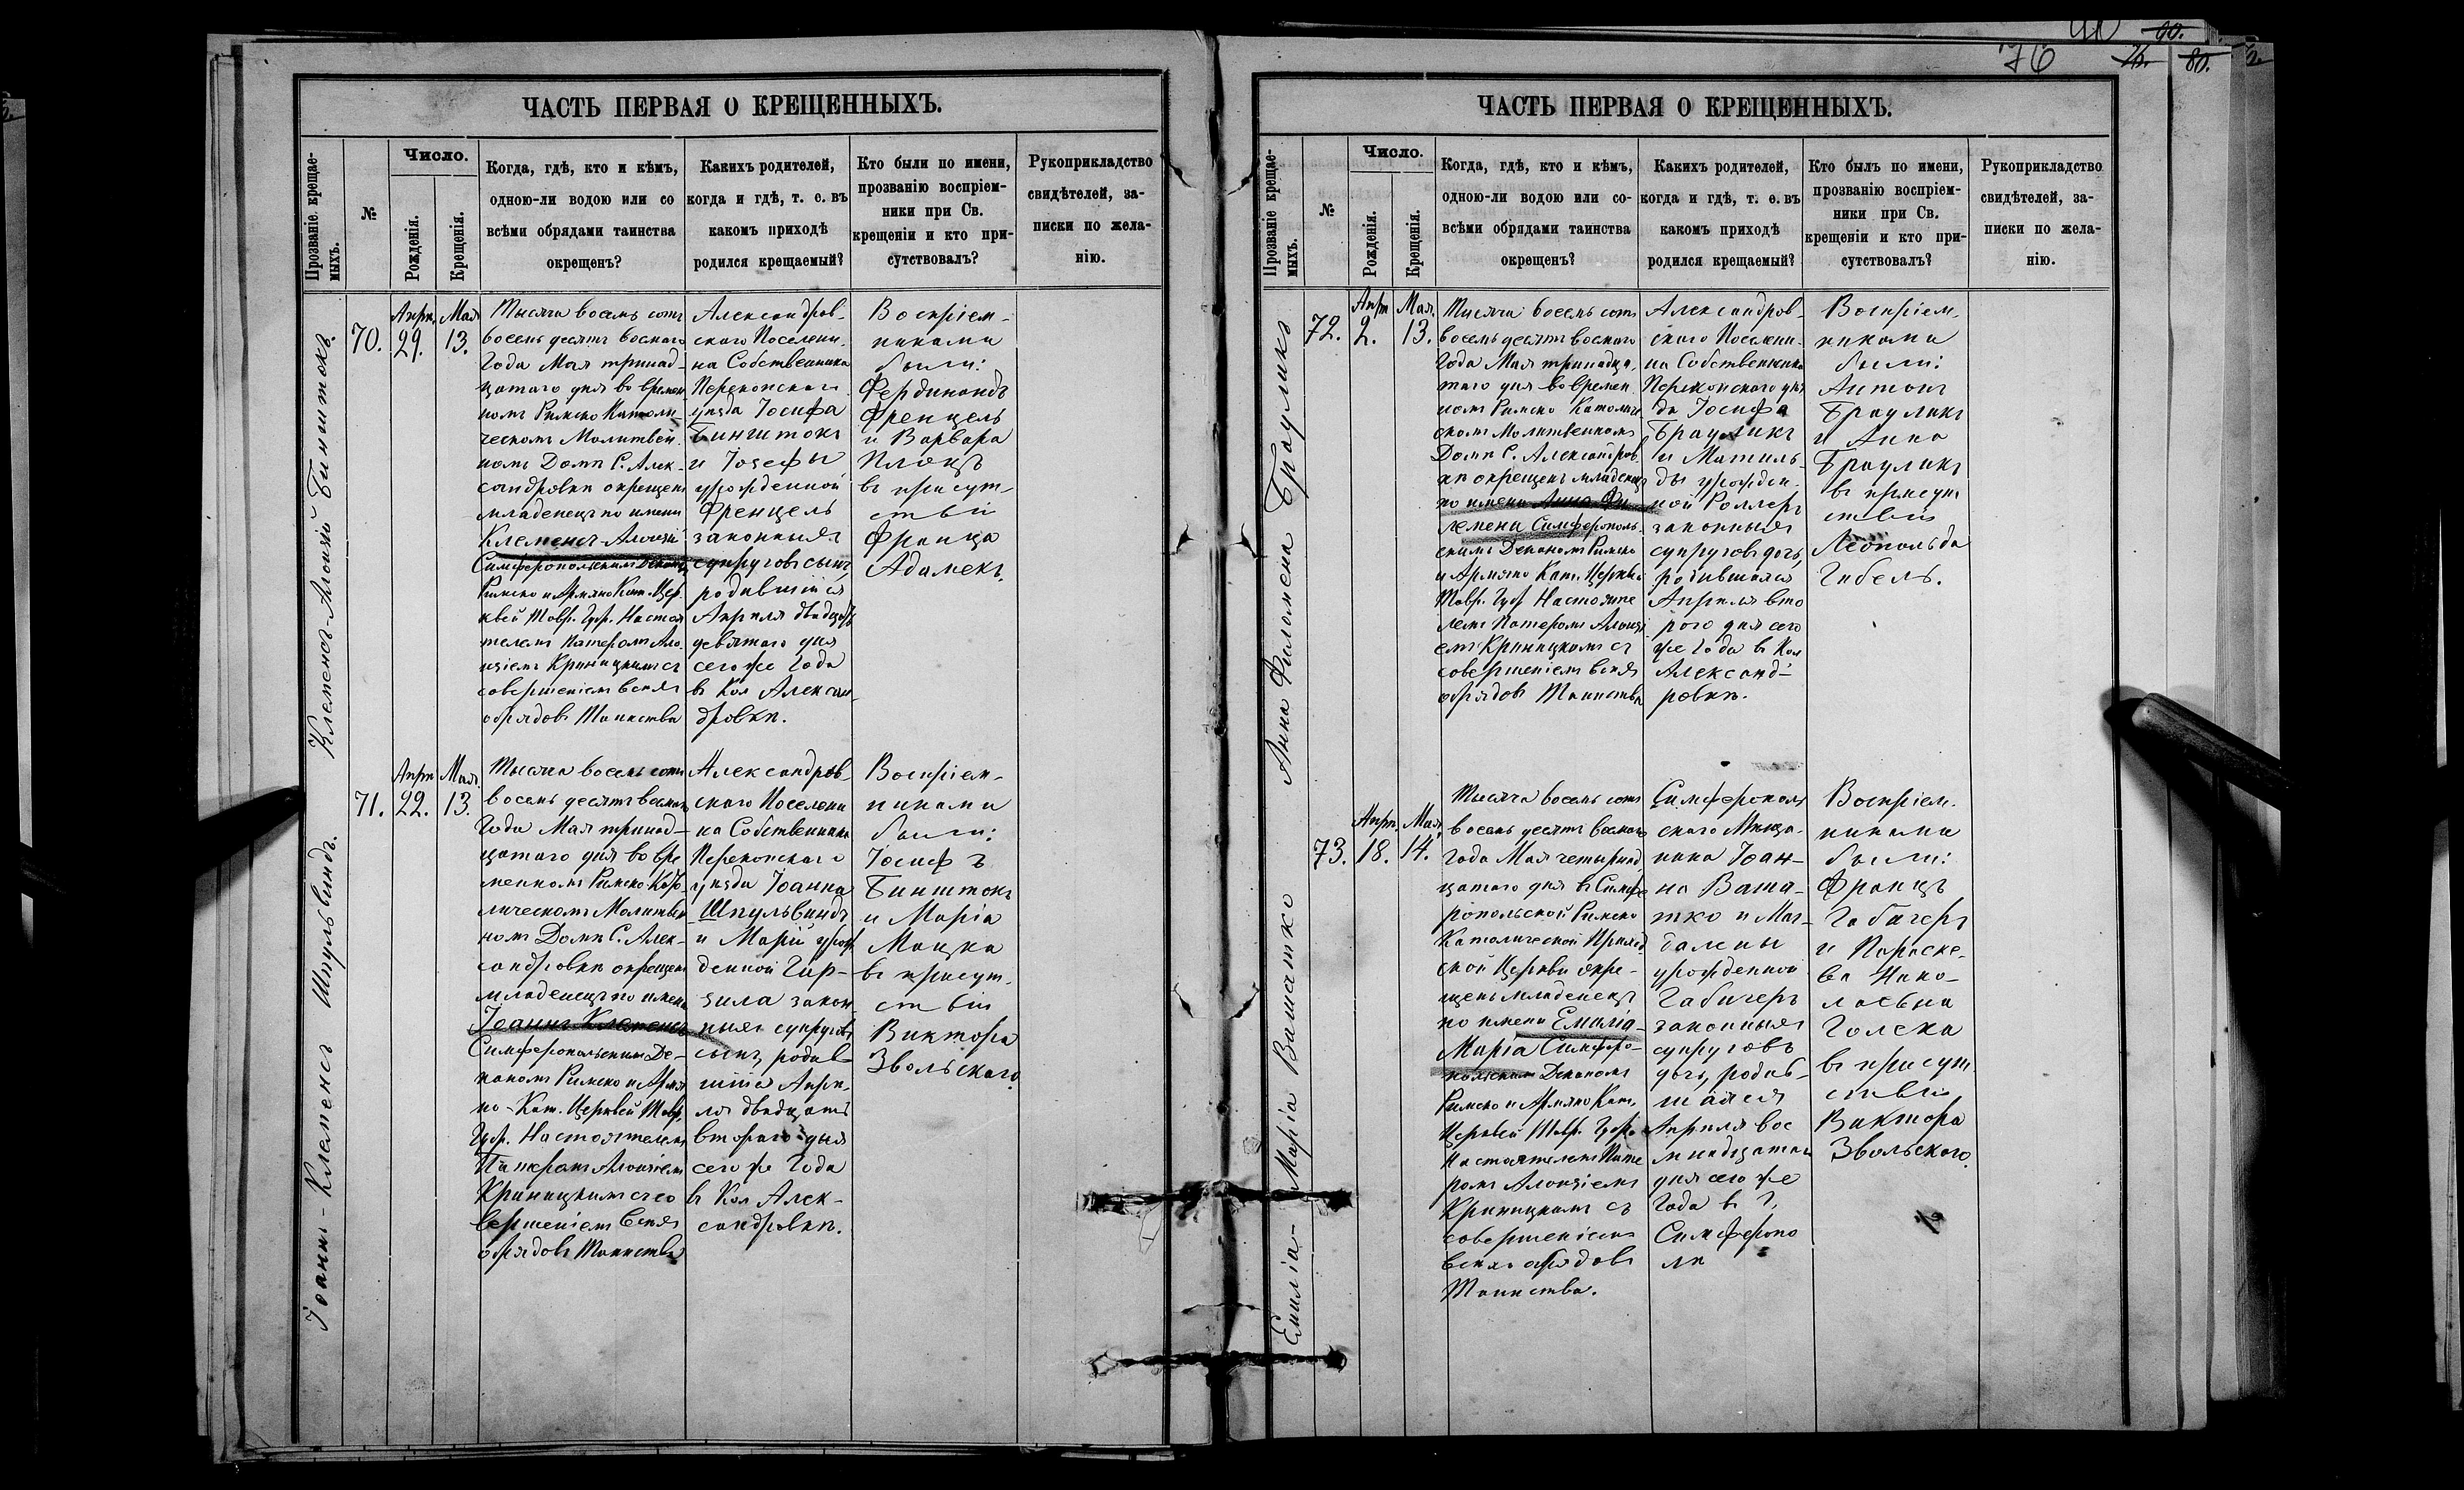 ЧАСТЬ ПЕРВАЯ О КРЕЩЕННЫХЪ.
Прозваніе крещае-
мыхъ.
№
Число.
Рожденія.
Крещенія.
Когда, гдѣ, кто и кѣмъ,
одною-ли водою или со
всѣми обрядами таинства
окрещенъ?
Какихъ родителей,
когда и гдѣ, т. е. въ
какомъ приходѣ
родился крещаемый?
Кто были по имени,
прозванію воспріем-
ники при Св.
крещеніи и кто при-
сутствовалъ?
Рукоприкладство
свидѣтелей, за-
писки по жела-
нію.
Клеменсъ-Алоизій Бинштокъ.
70.
Апрѣ.
29.
Мая
13.
Тысяча восемь сотъ
восемьдесятъ восмаго
Года Мая тринад-
цатаго дня во времен
номъ Римско Католи-
ческомъ Молитвен
номъ Домѣ С. Алек-
сандровкѣ окрещенъ
младенецъ по имени
Клеменсъ-Алоизій
Симферопольскимъ Деканомъ
Римско и Армяно Кат. Цер
квей Тавр. Губ. Настоя
телемъ Патеромъ Ало
изіемъ Криницкимъ съ
совершеніемъ всѣхъ
обрядовъ Таинства
Александров-
скаго Поселени-
на Собственника
Перекопскаго
уѣзда Іосифа
Бинштокъ
и Іозефы
урожденной
Френцель
законныхъ
супруговъ сынъ,
родившійся
Апрѣля двадцать
девятаго дня
сего же Года
въ Кол Алексан-
дровкѣ.
Воспріем-
никами
были:
Фердинандъ
Френцель
и Варвара
Плоцъ
въ присут-
ствіи
Франца
Адамекъ.
Іоаннъ-Клеменсъ Шпульвиндъ.
71.
Апрѣ
22.
Мая
13.
Тысяча восемь сотъ
восемь десятъ восмаго
Года Мая тринад-
цатаго дня во вре
менномъ Римско-Като-
лическомъ Молитвен
номъ Домѣ С. Алек-
сандровкѣ окрещенъ
младенецъ по имени
Іоаннъ Клеменсъ
Симферопольскимъ Де-
каномъ Римско и Армя
но-Кат. Церквей Тавр.
Губ. Настоятелемъ
Патеромъ Алоизіемъ
Криницкимъ съ со
вершеніемъ всѣхъ
обрядовъ Таинства
Александров-
скаго Поселени
на Собственника
Перекопскаго
уѣзда Іоанна
Шпульвиндъ
и Маріи урож
денной Гир-
зила закон
ныхъ супруговъ
сынъ, родив-
шійся Апрѣ-
ля двадцать
втораго дня
сего же Года
въ Кол Алек-
сандровкѣ.
Воспріем-
никами
были:
Іосифъ
Бинштокъ
и Марія
Мацка
въ присут-
ствіи
Виктора
Звольскаго.
76
90.
80.
ЧАСТЬ ПЕРВАЯ О КРЕЩЕННЫХЪ.
Прозваніе крещае-
мыхъ.
№
Число.
Рожденія.
Крещенія.
Когда, гдѣ, кто и кѣмъ,
одною-ли водою или со-
всѣми обрядами таинства
окрещенъ?
Какихъ родителей,
когда и гдѣ, т. е. въ
какомъ приходѣ
родился крещаемый?
Кто былъ по имени,
прозванію воспріем-
ники при Св.
крещеніи и кто при-
сутствовалъ?
Рукоприкладство
свидѣтелей, за-
писки по жела-
нію.
Анна Филомена Брауликъ
72.
Апрѣ
2.
Мая.
13.
Тысяча восемь сотъ
восемьдесятъ восмаго
Года Мая тринадца-
таго дня во времен
номъ Римско Католиче
скомъ Молитвенномъ
Домѣ С. Александров
кѣ окрещенъ младенецъ
по имени Анна Фи
ломена Симферополь-
скимъ Деканомъ Римско
и Армяно Кат. Церквей
Тавр. Губ Настояте
лемъ Патеромъ Алоизі
емъ Криницкимъ съ
совершеніемъ всѣхъ
обрядовъ Таинства
Александров-
скаго Поселени-
на Собственника
Перекопскаго уѣз
да Іосифа
Брауликъ
и Матиль-
ды урожден-
ной Роллеръ
законныхъ
супруговъ дочь,
родившаяся
Апрѣля вто
раго дня сего
же Года въ Кол
Александ-
ровкѣ.
Воспріем-
никами
были:
Антонъ
Брауликъ
и Анна
Брауликъ
въ присут
ствіи
Леопольда
Гибель.
Емилія-Марія Вататко
73.
Апрѣ.
18.
Мая
14.
Тысяча восемь сотъ
восемь десятъ восмаго
Года Мая четырнад
цатаго дня въ Симфе
ропольской Римско
Католической Приход
ской Церкви окре-
щенъ младенецъ
по имени Емилія-
Марія Симферо-
польскимъ Деканомъ
Римско и Армяно Кат.
Церквей Тавр. Губер
Настоятелемъ Пате
ромъ Алоизіемъ
Криницкимъ съ
совершеніемъ
всѣхъ обрядовъ
Таинства.
Симферополь
скаго Мѣща-
нина Іоан-
на Вата-
тко и Маг-
далены
урожденной
Габигеръ
законныхъ
супруговъ
дочь, родив-
шаяся
Апрѣля вос
мнадцатаго
дня сего же
Года въ Г.
Симферопо
лѣ
Воспріем-
никами
были:
Францъ
Габигеръ
и Параске-
ва Нико-
лаевна
Голека
въ присут
ствіи
Виктора
Звольскаго.